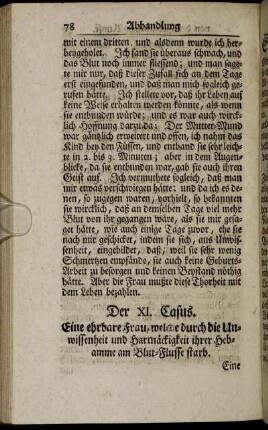 78 Abhandlung
mit einem dritten, und alsdenn wurde ich her-
beygeholet. Ich fand sie überaus schwach, und
das Blut noch immer fliessend; und man sag-
te mir nur, daß dieser Zufall sich an dem Tage
erst eingefunden, und daß man mich sogleich ge-
rufen hätte. Ich stellete vor, daß ihr Leben auf
keine Weise erhalten werden könnte, als wenn
sie entbunden würde; und es war auch wirck-
lich Hoffnung darzu da; Der Mutter-Mund
war gäntzlich erweitert und offen, ich nahm das
Kind bey den Füssen, und entband sie sehr leich-
te in 2. bis 3. Minuten; aber in dem Augen-
blicke, da sie entbunden war, gab sie auch ihren
Geist auf. Ich vermuthete sogleich, daß man
mir etwas verschwiegen hätte; und da ich es de-
nen, so zugegen waren, vorhielt, so bekannten
sie wircklich, daß an demselben Tage viel mehr
Blut von ihr gegangen wäre, als sie mir gesa-
get hätte, wie auch einige Tage zuvor, ehe sie
nach mir geschicket, indem sie sich, aus Unwis-
senheit, eingebildet, daß, weil sie sehr wenig
Schmertzen empfände, sie auch keine Geburts-
Arbeit zu besorgen und keinen Beystand nöthig
hätte. Aber die Frau mußte diese Thorheit mit
dem Leben bezahlen.
Der XI. Casus.
Eine ehrbare Frau, welche durch die Un-
wissenheit und Hartnäckigkeit ihrer Heb-
amme am Blut-Flusse starb.
Eine